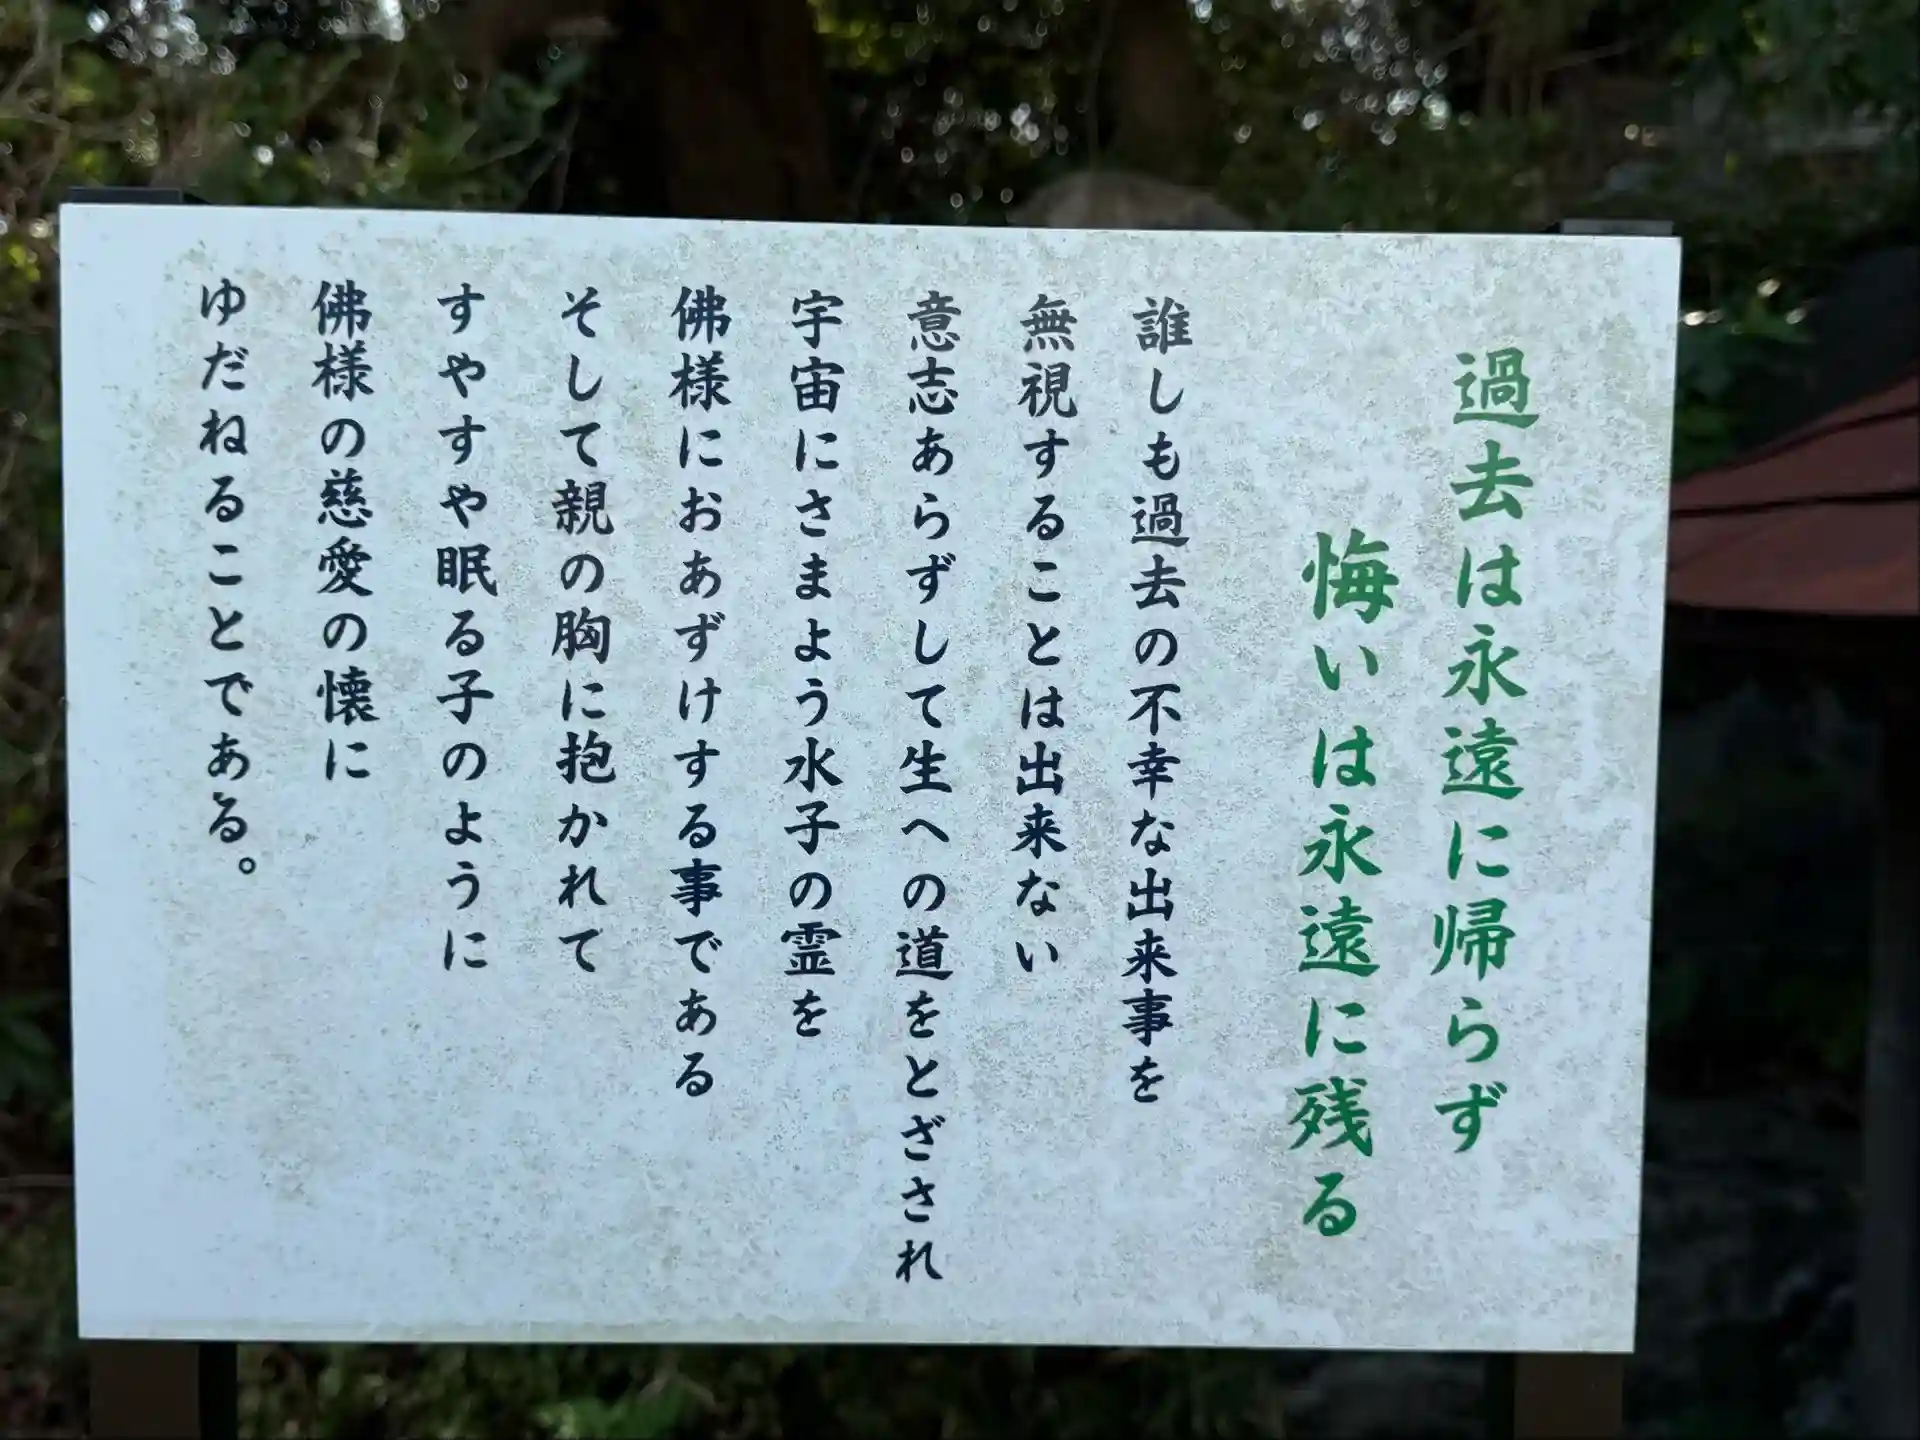 過去は永遠に帰らず
悔いは永遠に残る
誰しも過去の不幸な出来事を
無視することは出来ない
意志あらずして生への道をとざされ
宇宙にさまよう水子の霊を
佛様におあずけする事である
そして親の胸に抱かれて
すやすや眠る子のように
佛様の慈愛の懐に
ゆだねることである。